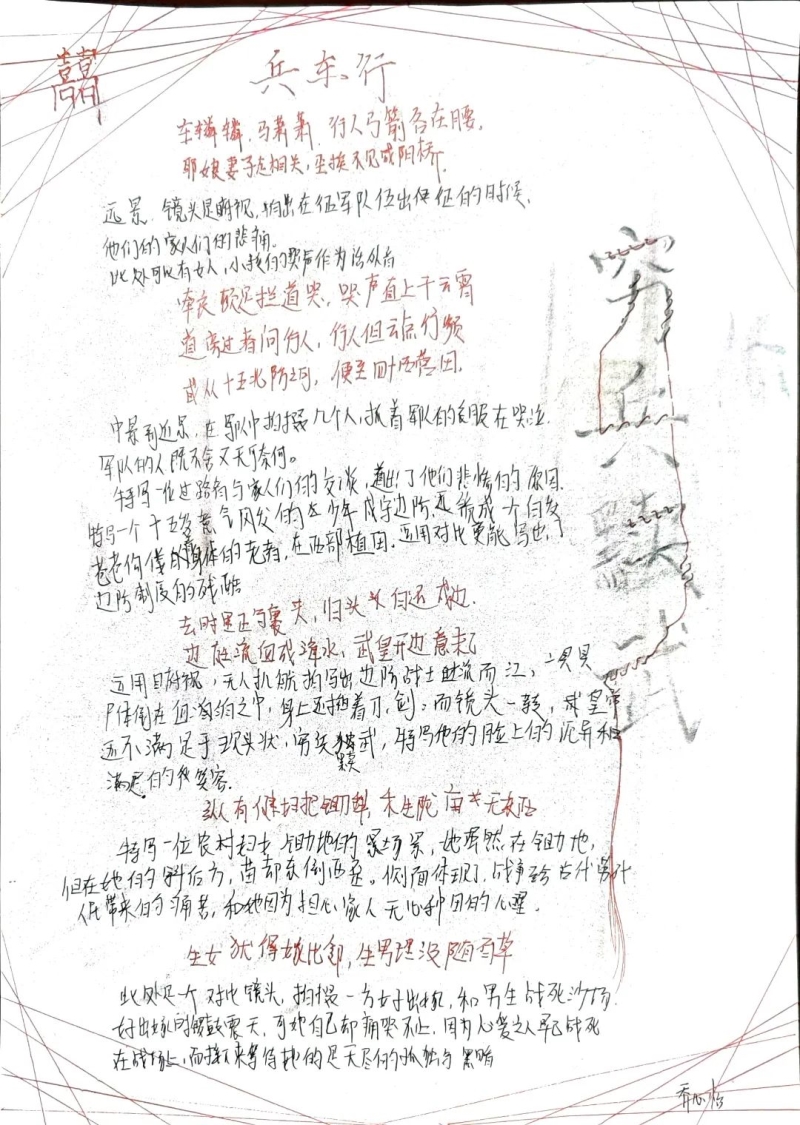 囍
兵车行
车辚辚,马萧萧,行人弓箭各在腰,
耶娘妻子走相失,尘埃不见咸阳桥.
远景.镜头是俯视,拍出在征军队伍出征的时候,
他们的家人们的悲痛.
此处可以有女人,小孩的哭声作为话外音
牵衣顿足拦道哭,哭声直上干云霄
道旁过者问行人,行人但云点行频
或从十五北防河,便至四十西营田.
中景到近景,在队中拍摄几个人,抓着军队的衣服在哭泣.
军队的人既不舍又无奈何。
特写一位过路者与家人们的交谈,道出了他们悲惨的原因.
特写一个十五岁意气风发的少年戍守边防,变成一个白发
苍苍佝偻身体的老者,在西部植田.运用对比更能写出了
边防制度的残酷
去时里正与裹头,归头头白还戍边.
边庭流血成海水,武皇开边意未已
运用俯视,无人机航拍写出边防战士血流而江,一具具
尸体倒在血海的之中,身上还插着刀,剑。而镜头一转,武皇帝
还不满足于现状,穷兵黩武,特写他的脸上的诡异和
满足的笑容.
纵有健妇把锄犁,禾生陇亩无东西
特写一位农村妇女锄地的场景,她虽然在锄地,
但在她的斜后方,苗却东倒西歪。侧面体现了战事给古代劳动
人民带来的痛苦,和她因为担心家人无心种田的心理.
生女犹得嫁比邻,生男埋没随百草
此处是一个对比镜头,拍摄一方好出嫁,和男生战死沙场.
好出嫁时锣鼓震天,可她自己却痛哭不止,因为心爱之人早已战死
在战场上,而接下来等待她的是无尽的孤独与黑暗
穷兵黩武